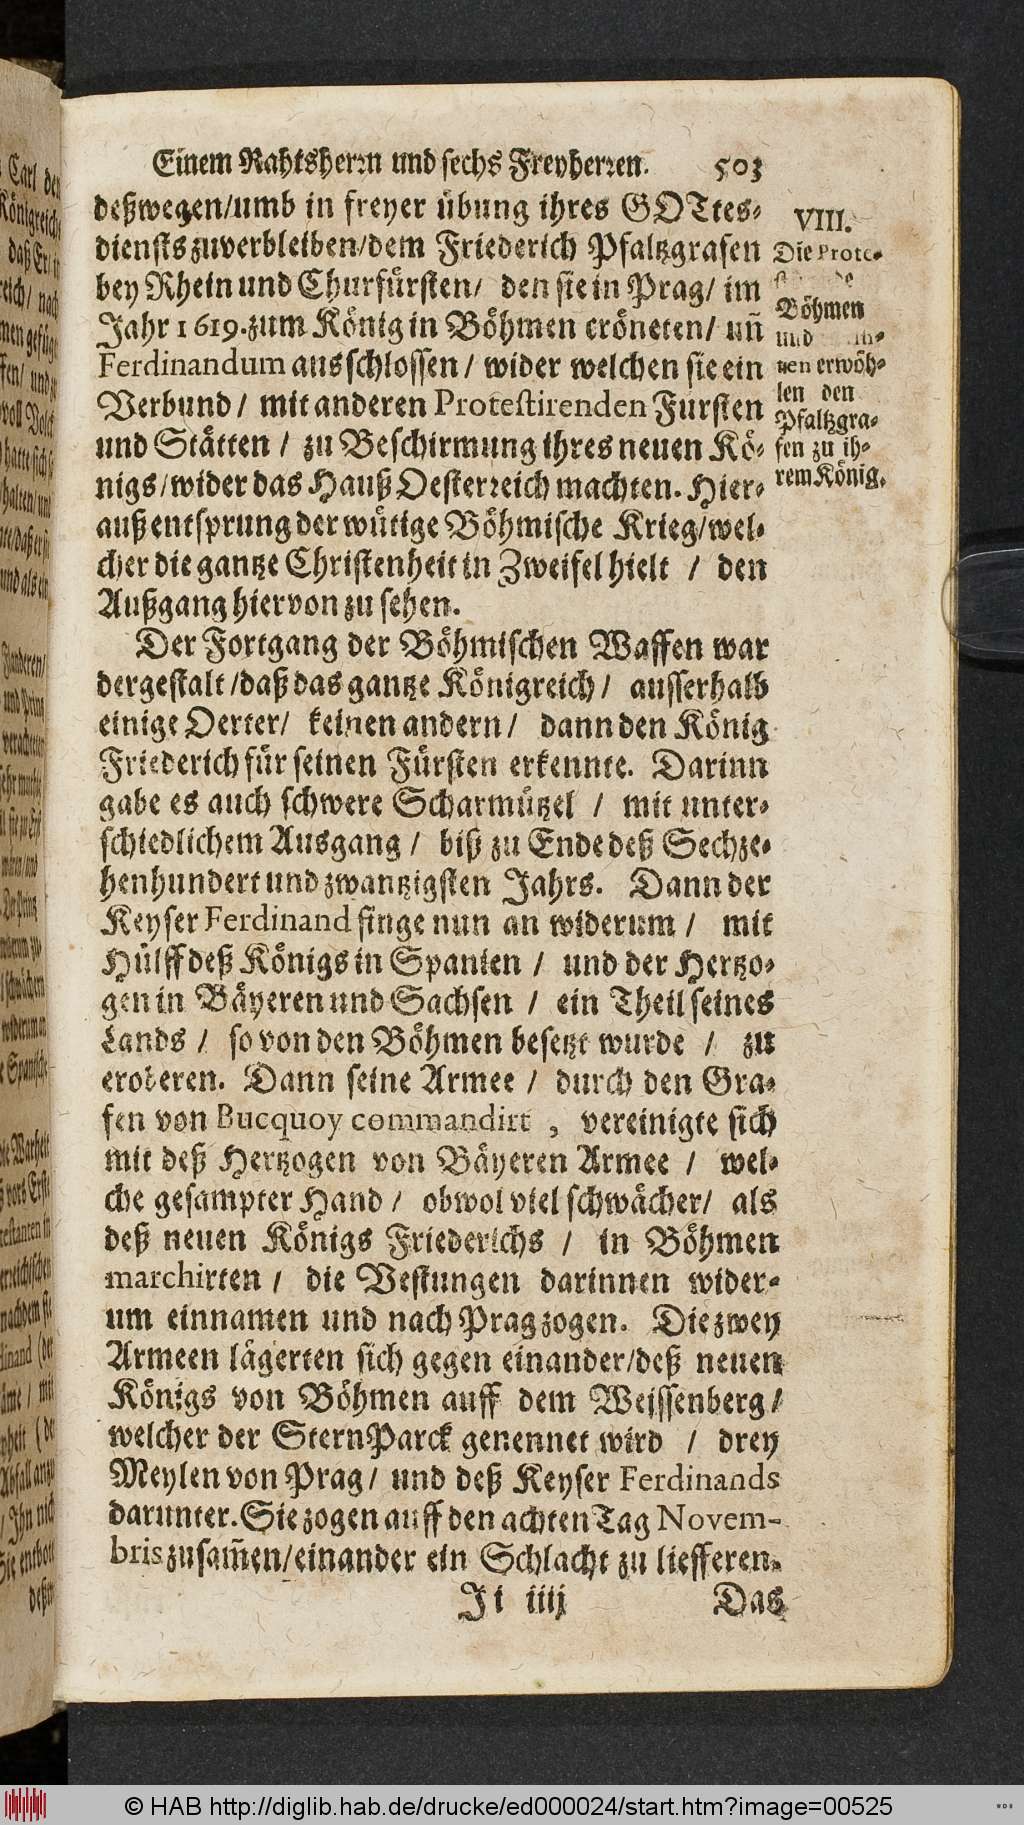 Einem Rahtsherꝛn und sechs Freyherꝛen. 503
deßwegen/umb in freyer übung ihres GOTtes-
diensts zuverbleiben/dem Friederich Pfaltzgrafen
bey Rhein und Churfürsten/ den sie in Prag/ im
Jahr 1619. zum König in Böhmen eröneten/ uñ
Ferdinandum ausschlossen/ wider welchen sie ein
Verbund/ mit anderen Protestirenden Fursten
und Stätten/ zu Beschirmung ihres neuen Kö-
nigs/wider das Hauß Oesterꝛeich machten. Hier-
auß entsprung der wütige Böhmische Krieg/wel-
cher die gantze Christenheit in Zweifel hielt / den
Außgang hiervon zu sehen.
VIII.
Die Prote-
Böhmen
und
nen erwöh-
len den
Pfaltzgra-
fen zu ih-
rem König.
Der Fortgang der Böhmischen Waffen war
dergestalt/daß das gantze Königreich/ ausserhalb
einige Oerter/ keinen andern/ dann den König
Friederich für seinen Fürsten erkennte. Darinn
gabe es auch schwere Scharmützel / mit unter-
schiedlichem Ausgang / biß zu Ende deß Sechze-
henhundert und zwantzigsten Jahrs. Dann der
Keyser Ferdinand finge nun an widerum / mit
Hülff deß Königs in Spanien / und der Hertzo-
gen in Bäyeren und Sachsen / ein Theil seines
Lands / so von den Böhmen besetzt wurde / zu
eroberen. Dann seine Armee / durch den Gra-
fen von Bucquoy commandirt , vereinigte sich
mit deß Hertzogen von Bäyeren Armee / wel-
che gesampter Hand / obwol viel schwächer/ als
deß neuen Königs Friederichs / in Böhmen
marchirten / die Vestungen darinnen wider-
um einnamen und nach Prag zogen. Die zwey
Armeen lägerten sich gegen einander/deß neuen
Königs von Böhmen auff dem Weissenberg/
welcher der SternParck genennet wird / drey
Meylen von Prag/ und deß Keyser Ferdinands
darunter. Sie zogen auff den achten Tag Novem-
bris zusam̃en/einander ein Schlacht zu liefferen.
Ji iiij Das
© HAB http://diglib.hab.de/drucke/ed000024/start.htm?image=00525